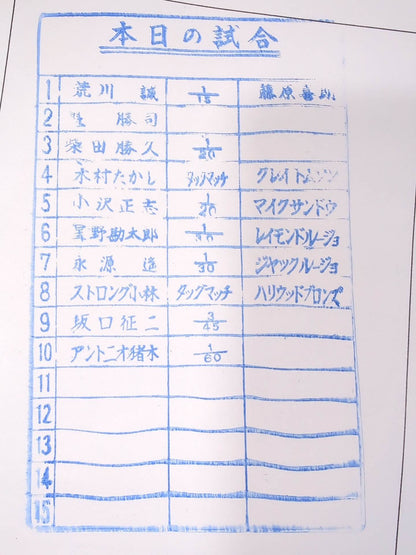 本日の試合
1 荒川 誠 1/15 藤原喜明
2 勝司
3 柴田勝久 1/20
4 木村たかし タッグマッチ クレイトムソン
5 小沢正志 1/20 マイクサンドウ
6 星野勘太郎 1/30 レイモンドルージョ
7 永源 遥 1/30 ジャックルージョ
8 ストロング小林 タッグマッチ ハリウッドブロンズ
9 坂口征二 3/45
10 アントニオ猪木 1/60
11
12
13
14
15